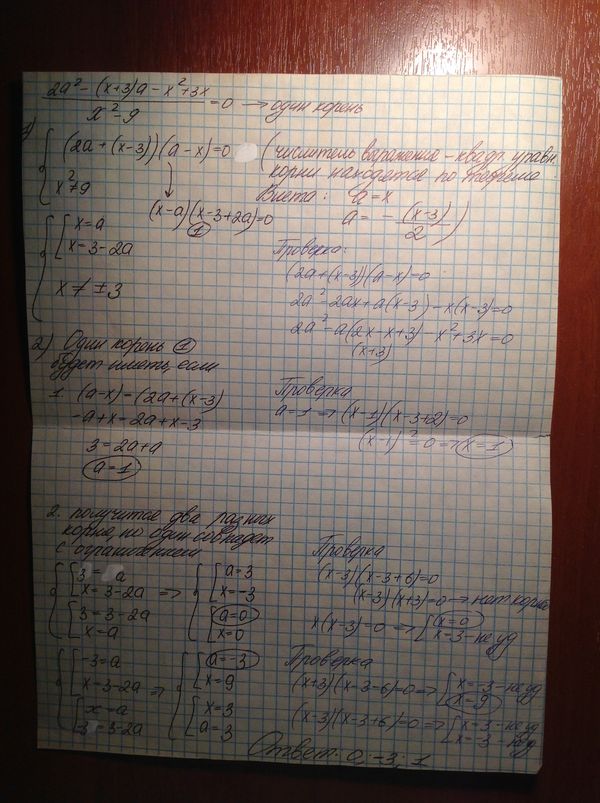 (2a² - (x+3)a - x² + 3x) / (x² - 9) = 0 → один корень
1)
{ (2a + (x-3))(a-x) = 0
x² ≠ 9
(числитель выражение - квадр. уравн.
корни находятся по теореме
Виета: a = x
a = - (x-3)/2 )
(x-a)(x-3+2a) = 0
①
{ [ x = a
x = 3-2a
x ≠ ±3
Проверка:
(2a + (x-3))(a-x) = 0
2a² - 2ax + a(x-3) - x(x-3) = 0
2a² - a(2x-x+3) - x² + 3x = 0
(x+3)
2) Один корень ①
будет иметь, если
1 (a-x) = (2a + (x-3)
-a+x = 2a+x-3
3 = 2a+a
a = 1
Проверка
a = 1 ⇒ (x-1)(x-3+2) = 0
(x-1)² = 0 ⇒ x = 1
2. получится два разных
корня, но один совпадет
с ограничением
{ [ 3 = a
x = 3-2a
[ 3 = 3-2a
x = a
⇒
{ [ a = 3
x = -3
[ a = 0
x = 0
Проверка
(x-3)(x-3+6) = 0
(x-3)(x+3) = 0 → нет корня
x(x-3) = 0 ⇒ [ x = 0
x = 3 - не уд
{ [ -3 = a
x = 3-2a
[ x = a
3 = 3-2a
⇒
{ [ a = -3
x = 9
[ x = 3
a = 3
Проверка
(x+3)(x-3-6) = 0 ⇒ [ x = -3 - не уд
x = 9
(x-3)(x-3+6) = 0 ⇒ [ x = 3 - не уд
x = -3 - не уд
Ответ: 0; -3; 1